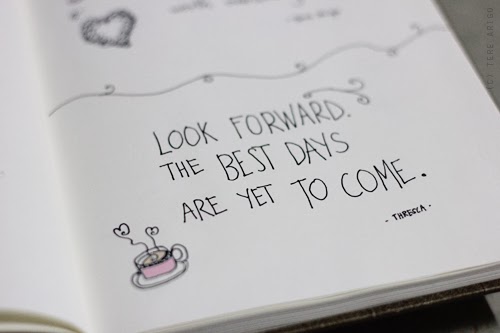 LOOK FORWARD.
THE BEST DAYS
ARE YET TO COME.
- THRESCA -